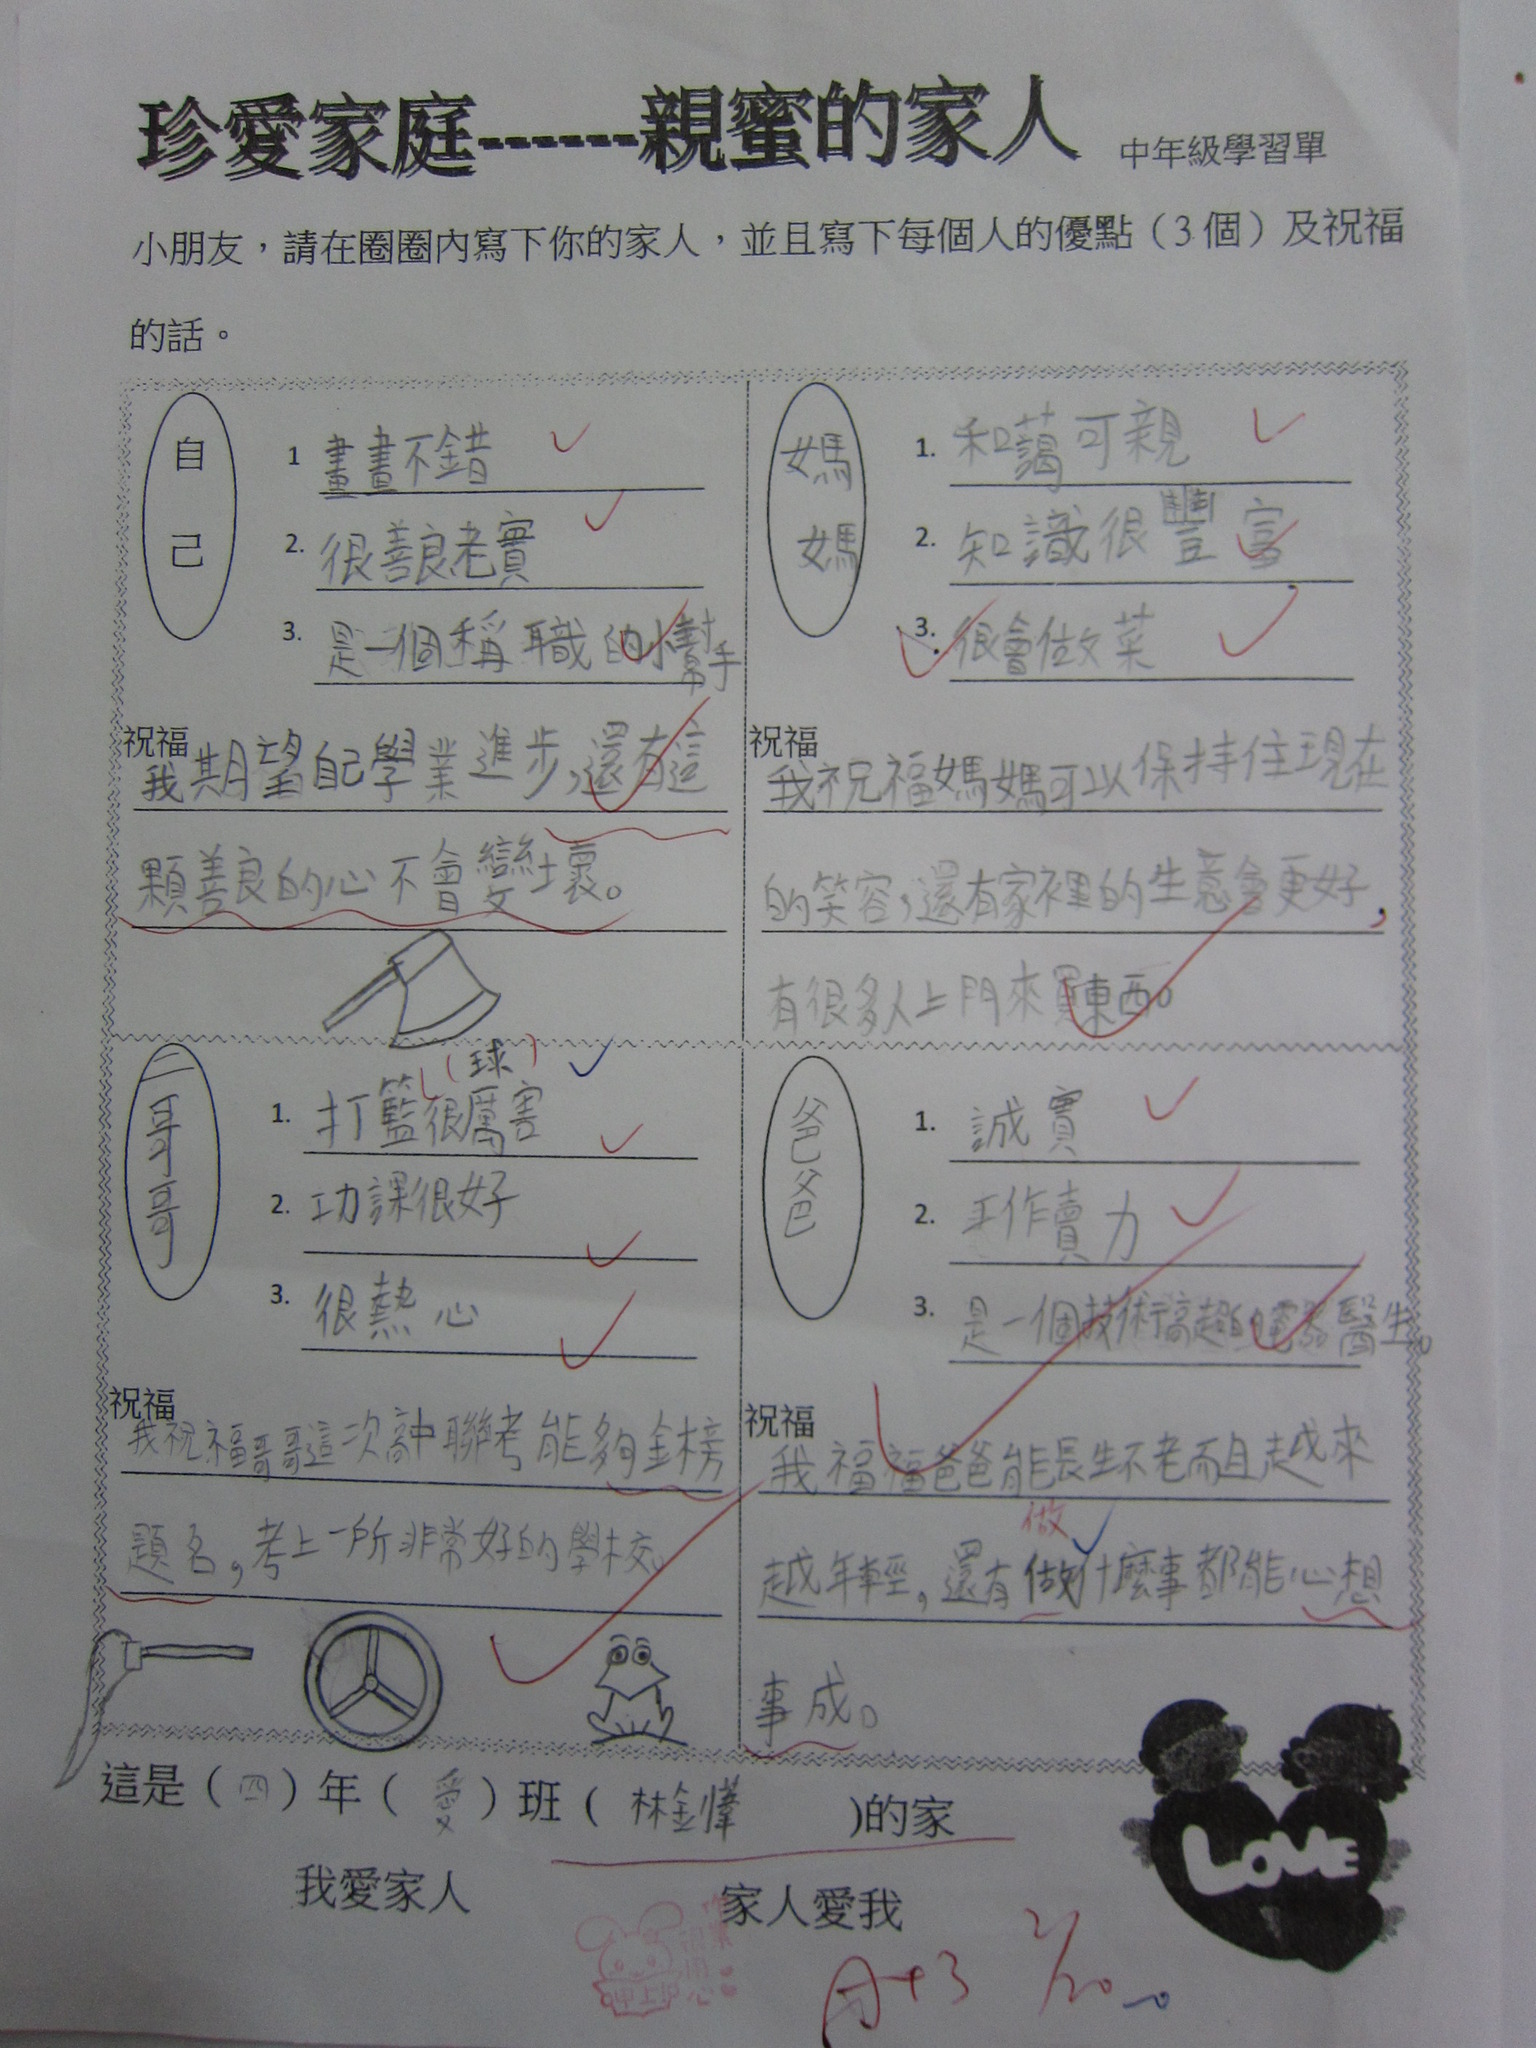 珍愛家庭------親蜜的家人 中年級學習單
小朋友，請在圈圈內寫下你的家人，並且寫下每個人的優點（3個）及祝福
的話。
自己
1 畫畫不錯
2. 很善良老實
3. 是一個稱職的小幫手
祝福
我期望自己學業進步，還有這
顆善良的心不會變壞。
媽媽
1. 和藹可親
2. 知識很豐富
3. 很會做菜
祝福
我祝福媽媽可以保持住現在
的笑容，還有家裡的生意會更好，
有很多人上門來買東西。
二哥哥
(球)
1. 打籃很厲害
2. 功課很好
3. 很熱心
祝福
我祝福哥哥這次高中聯考能夠金榜
題名，考上一所非常好的學校。
爸爸
1. 誠實
2. 工作賣力
3. 是一個技術高超的電器醫生。
祝福
我福福爸爸能長生不老而且越來
做
越年輕，還有做什麼事都能心想
事成。
這是（四）年（愛）班（林金 )的家
我愛家人 家人愛我
LOVE
A+3 2/20